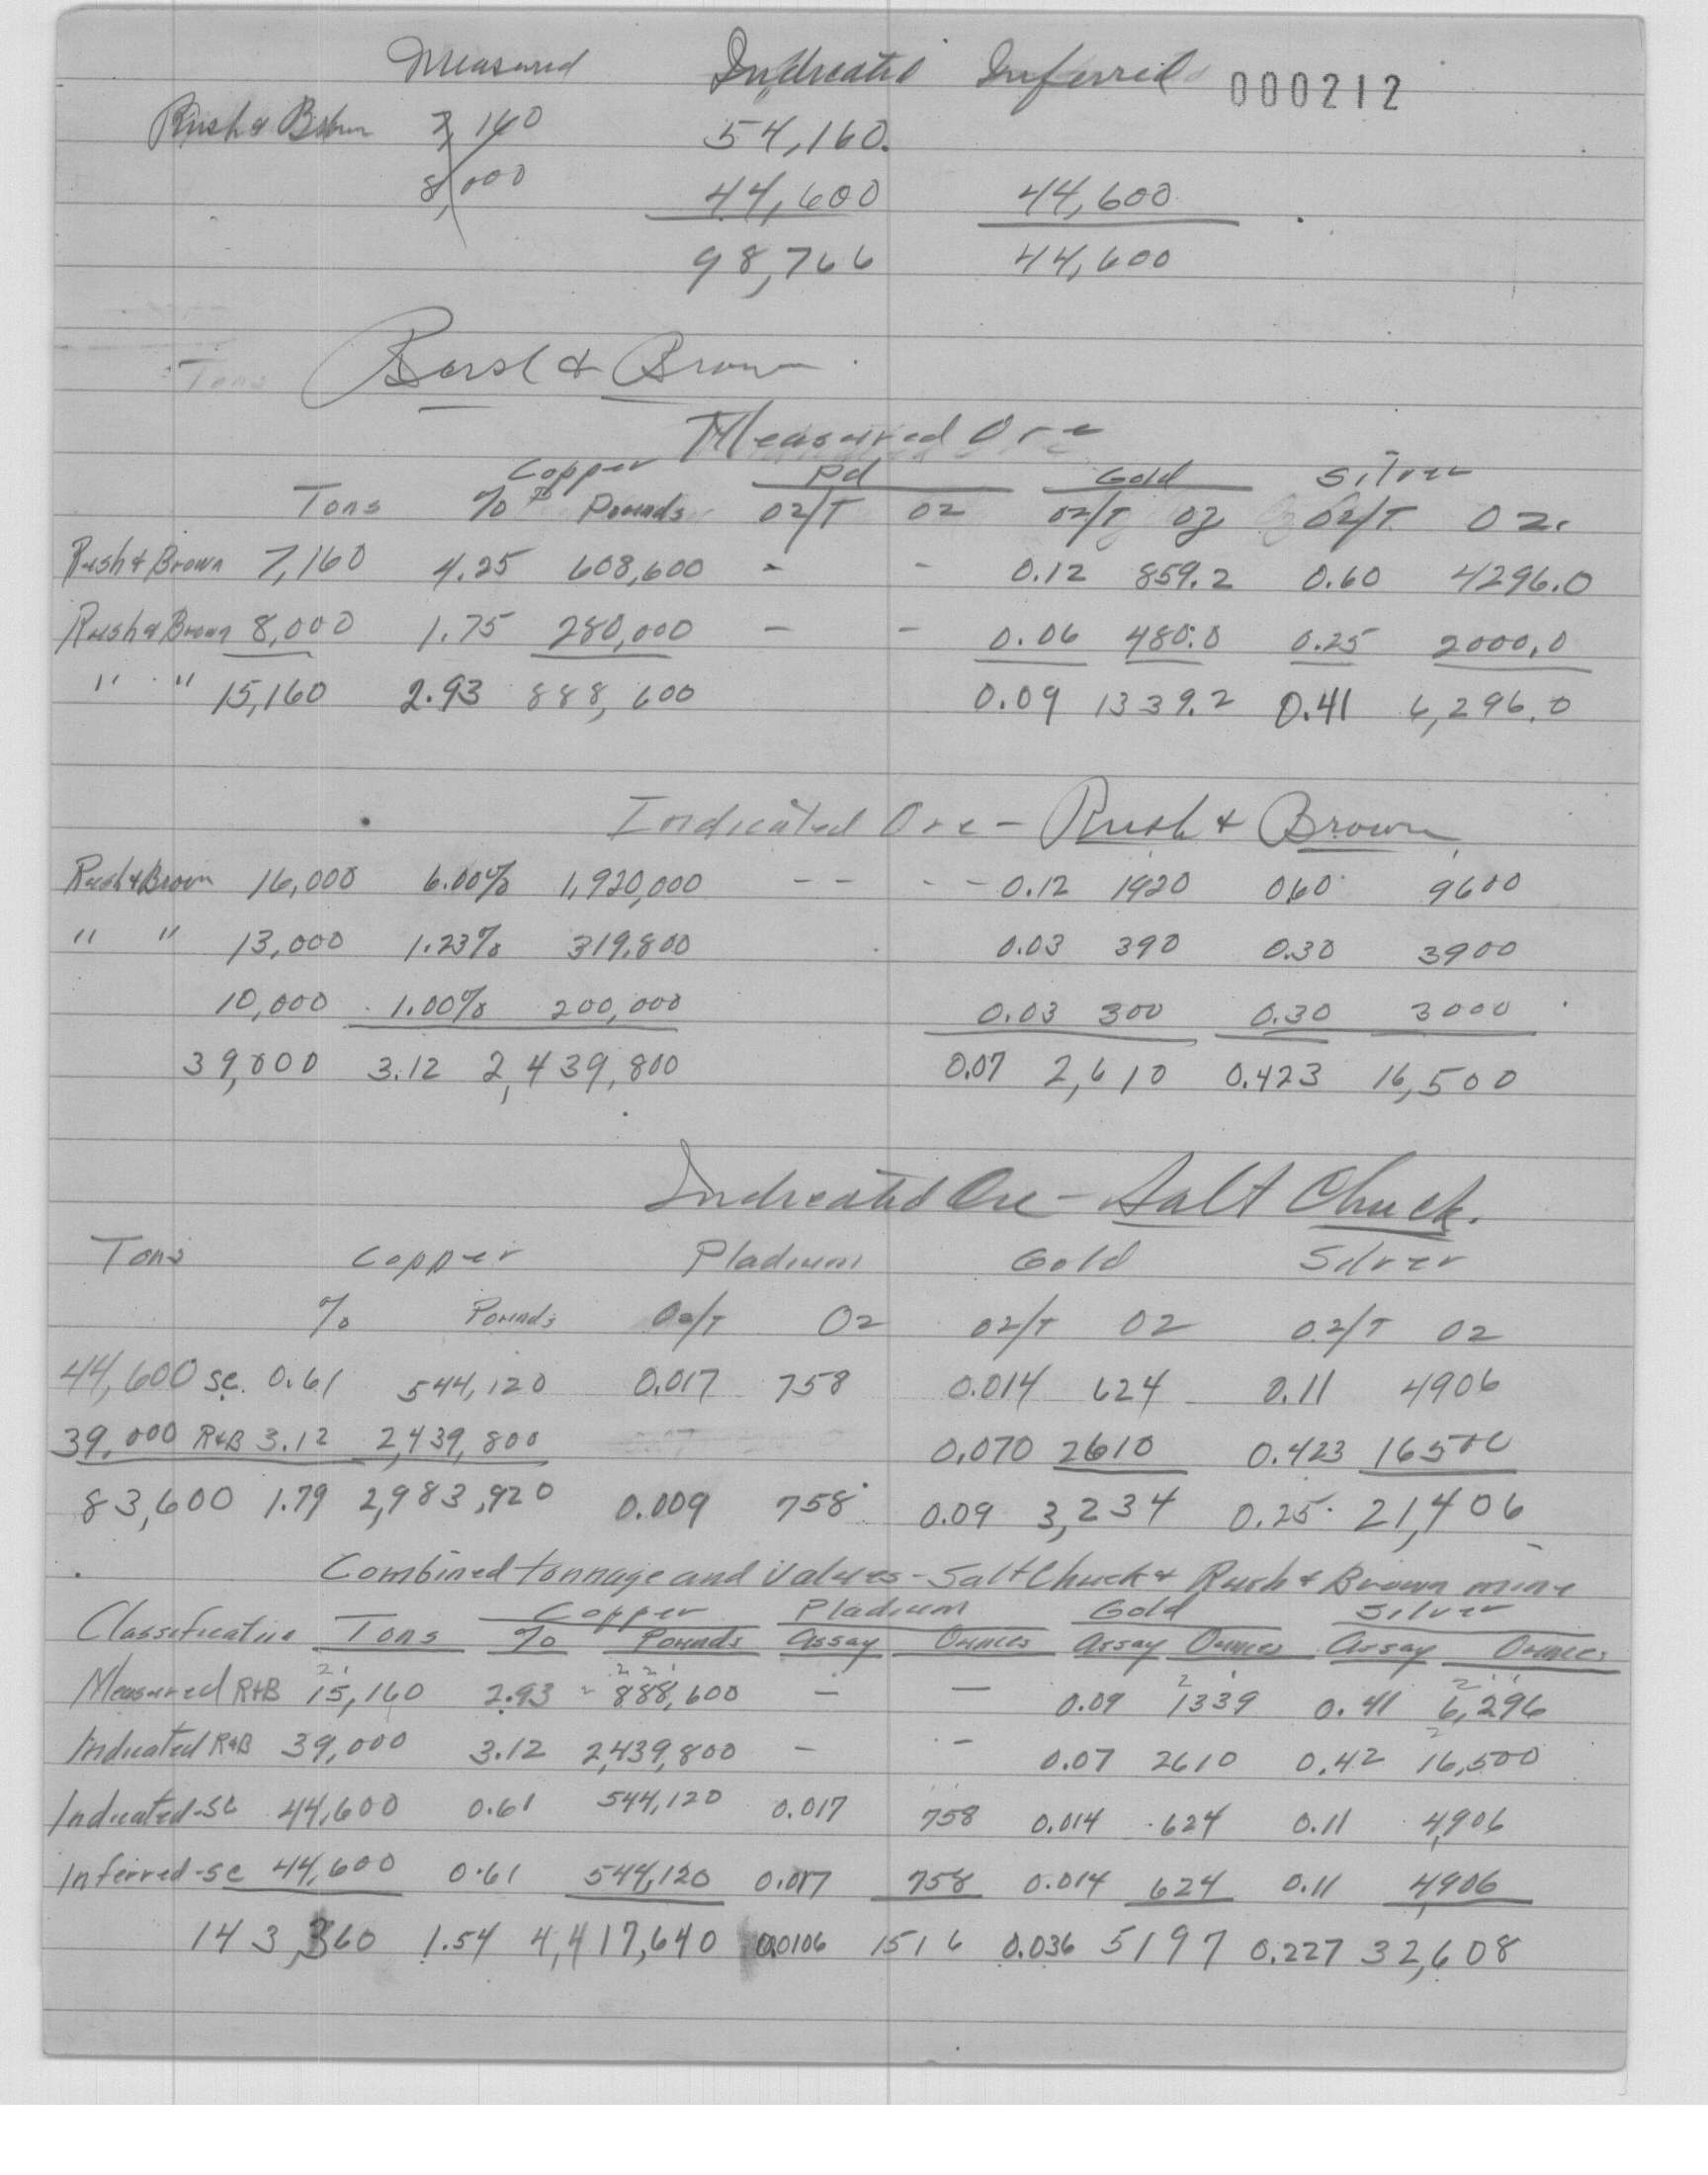 Measured Indicated Inferred 000212
Rush & Brown 7,160 54,160.
8,000 44,600 44,600
98,766 44,600
Tons Rush & Brown
Measured Ore
Copper Pd Gold Silver
Tons % Pounds oz/T oz oz/T oz oz/T oz.
Rush & Brown 7,160 4.25 608,600 - - 0.12 859.2 0.60 4296.0
Rush & Brown 8,000 1.75 280,000 - - 0.06 480.0 0.25 2000.0
" " 15,160 2.93 888,600 0.09 1339.2 0.41 6,296.0
Indicated Ore - Rush & Brown
Rush & Brown 16,000 6.00% 1,920,000 - - - - 0.12 1920 0.60 9600
" " 13,000 1.23% 319,800 0.03 390 0.30 3900
10,000 1.00% 200,000 0.03 300 0.30 3000
39,000 3.12 2,439,800 0.07 2,610 0.423 16,500
Indicated Ore - Salt Chuck.
Tons Copper Pladium Gold Silver
% Pounds Oz/T Oz oz/T oz oz/T oz
44,600 sc. 0.61 544,120 0.017 758 0.014 624 0.11 4906
39,000 R&B 3.12 2,439,800 0.070 2610 0.423 16500
83,600 1.79 2,983,920 0.009 758 0.09 3,234 0.25 21,406
Combined tonnage and values - Salt Chuck & Rush & Brown mine
Copper Pladium Gold Silver
Classification Tons % Pounds assay Ounces assay Ounces assay Ounces
Measured R&B 15,160 2.93 - 888,600 - - 0.09 1339 0.41 6,296
Indicated R&B 39,000 3.12 2,439,800 - - 0.07 2610 0.42 16,500
Indicated-SC 44,600 0.61 544,120 0.017 758 0.014 624 0.11 4,906
Inferred-SC 44,600 0.61 544,120 0.017 758 0.014 624 0.11 4,906
143,360 1.54 4,417,640 0.0106 1516 0.036 5197 0.227 32,608